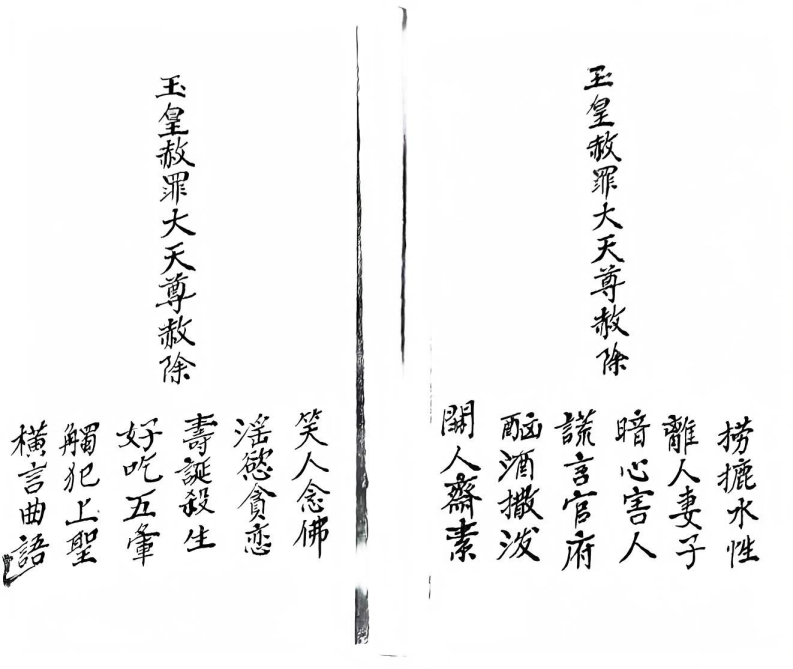 玉皇赦罪大天尊赦除
撈摝水性
離人妻子
暗心害人
謊言官府
酗酒撒泼
開人齋素
玉皇赦罪大天尊赦除
笑人念佛
淫慾貪恋
壽誕殺生
好吃五葷
觸犯上聖
橫言曲語